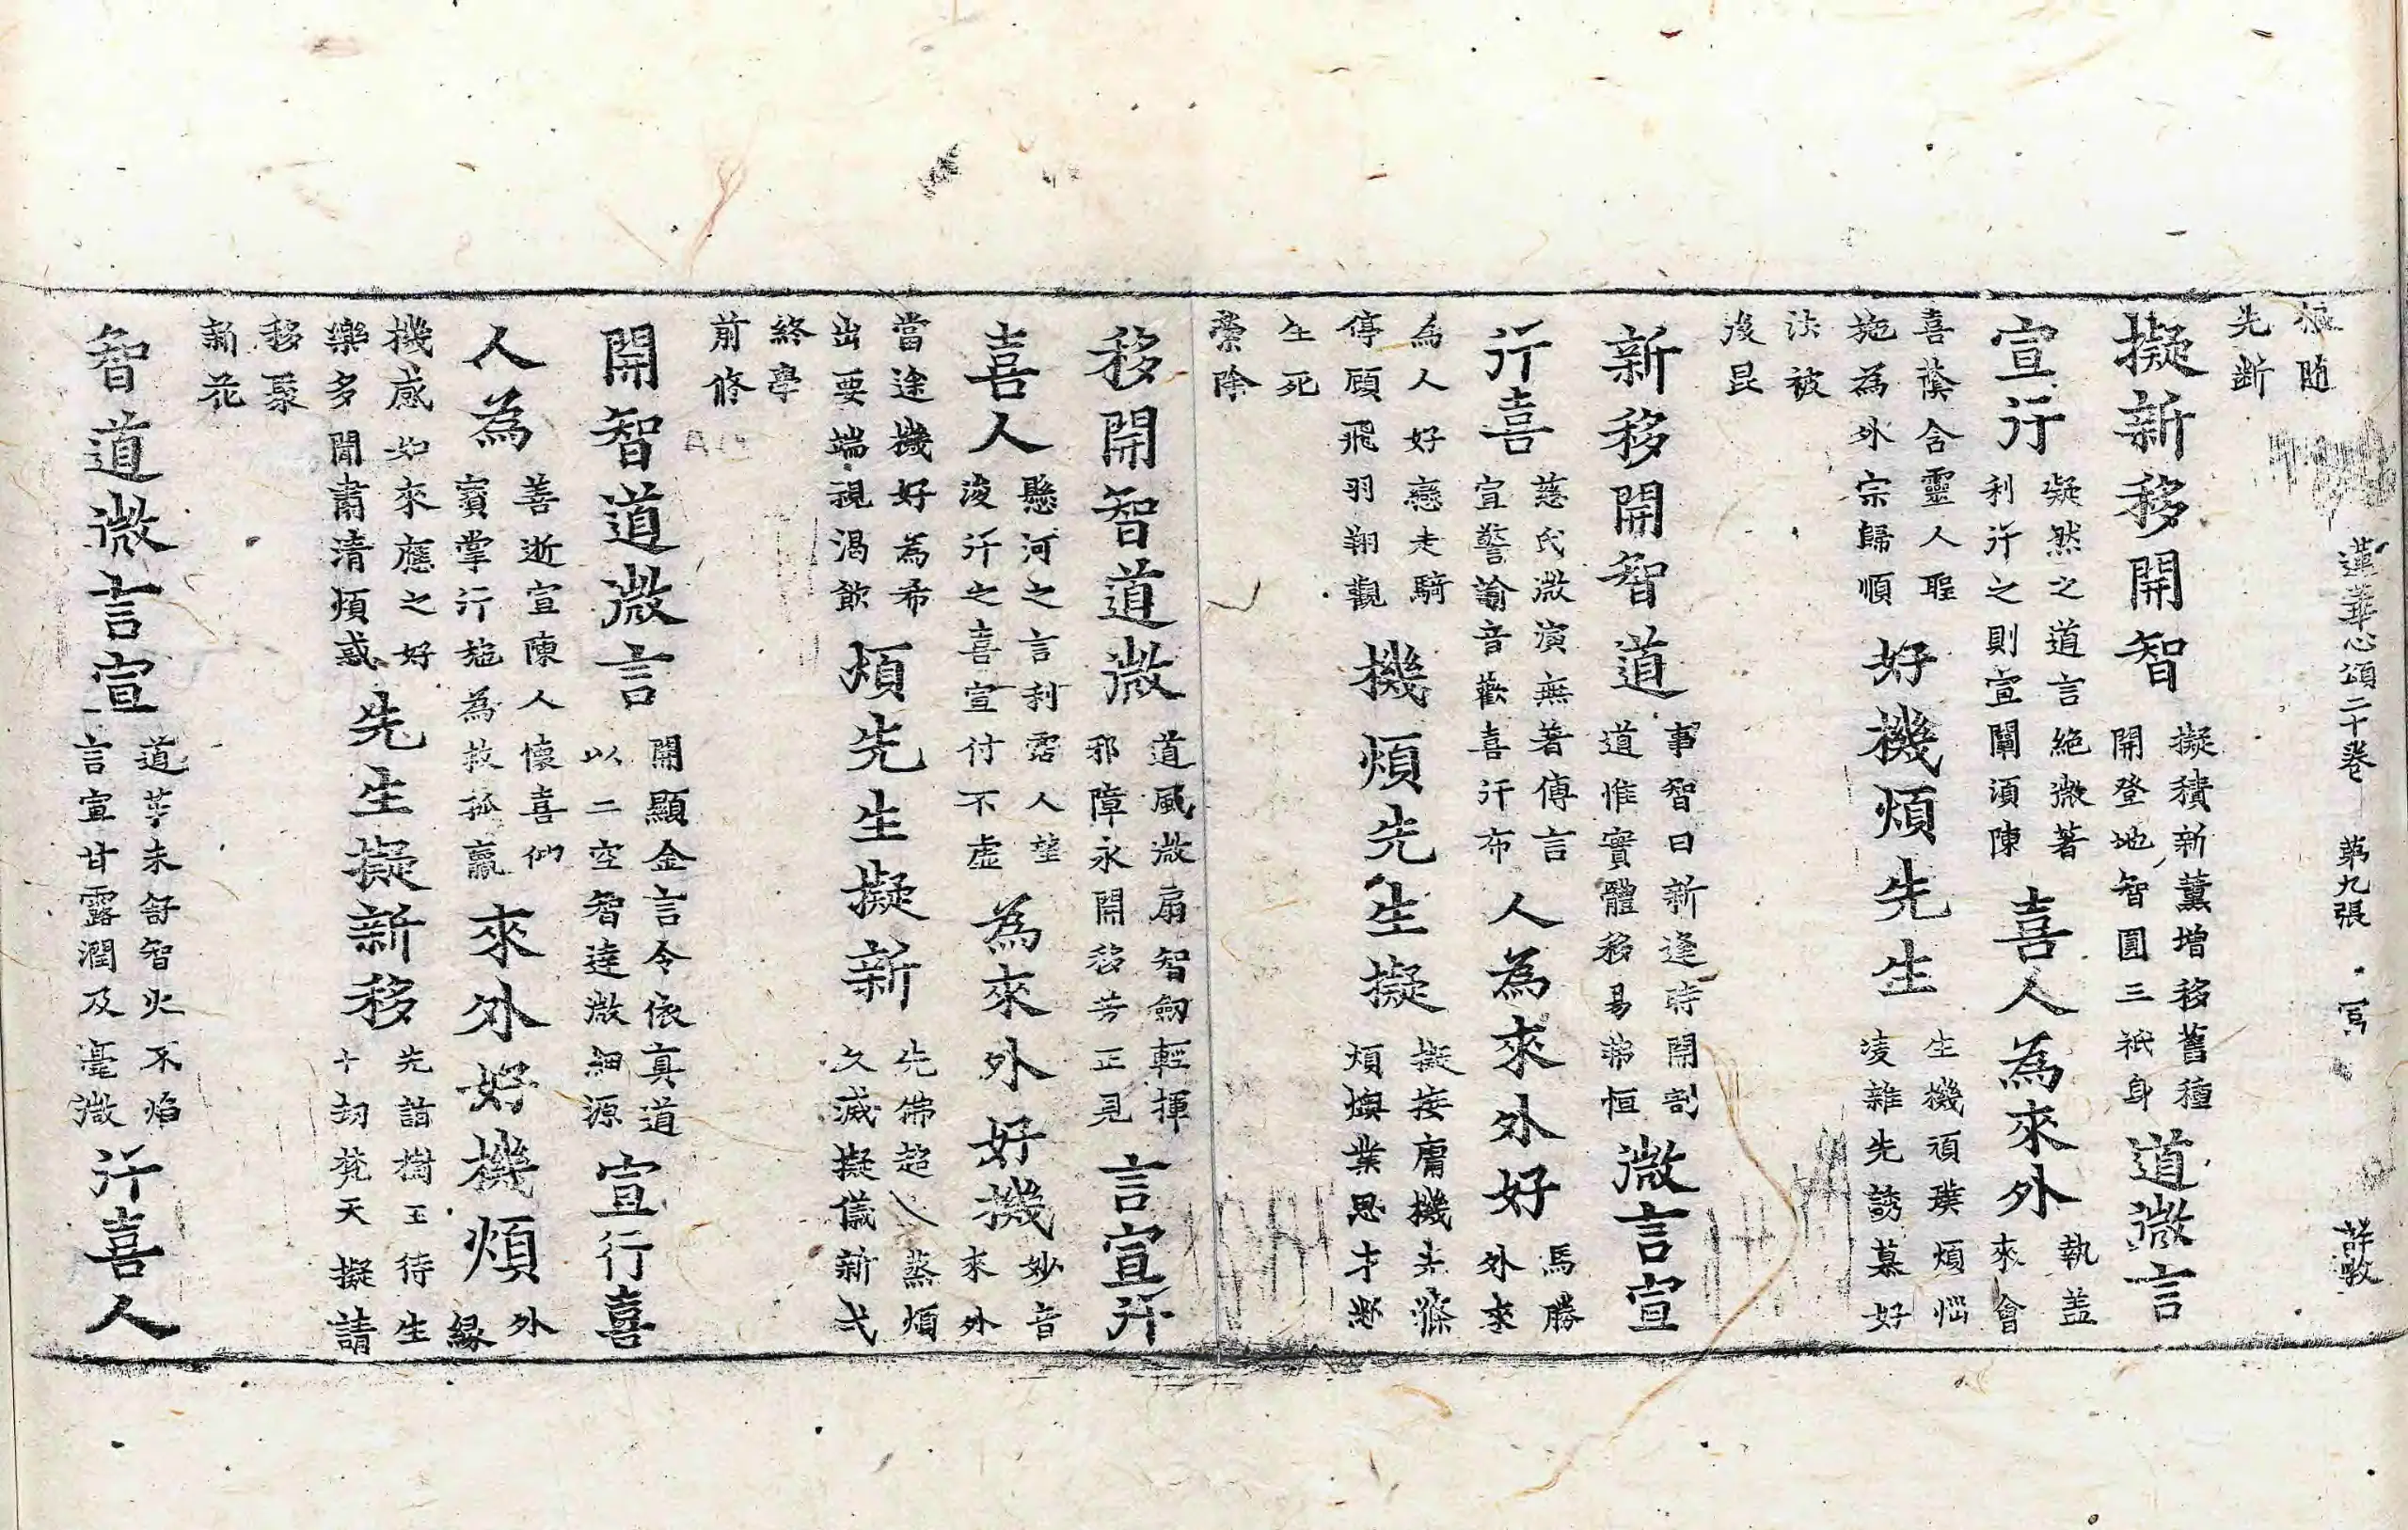 蓮華心頌二十卷 第九張
根随
先断
擬新移開智
擬積新薰增移舊種
開登地智圓三祇身
道微言
宣行
凝然之道言絶微著
利行之則宣闡湏陳
喜人為來外
執蓋
來會
喜蔭含靈人聖
施為外宗歸順
好機煩先生
生機頑璞煩惱
凌雜先誘慕好
法被
後昆
新移開智道
事智曰新逢時開剖
道惟實體移易常恒
微言宣
行喜
慈氏微演無著傳言
宣警諭音歡喜行布
人為來外好
馬勝
外來
為人好戀走騎
停顧飛羽翔觀
機煩先生擬
擬接膚機先滌
煩業才
生死
縈除
移開智道微
道風微扇智劔輕揮
邪障永開移苦正見
言宣行
喜人
懸河之言利霑人望
浚行之喜宣付不虛
為來外好機
妙音
來外
當途機好為希
出要端視渴飲
煩先生擬新
先佛超八蒸煩
久滅擬儀新弌
終學
前修
開智道微言
開顯金言令依真道
以二空智達微細源
宣行喜
人為
善逝宣陳人懷喜仰
寶掌行施為救孤羸
來外好機煩
外
縁
機感如來應之好
樂多聞肅清煩惑
先生擬新移
先詣樹王待生
十刧梵天擬請
移聚
新花
智道微言宣
道芽未舒智火不焰
言宣甘露潤及毫微
行喜人